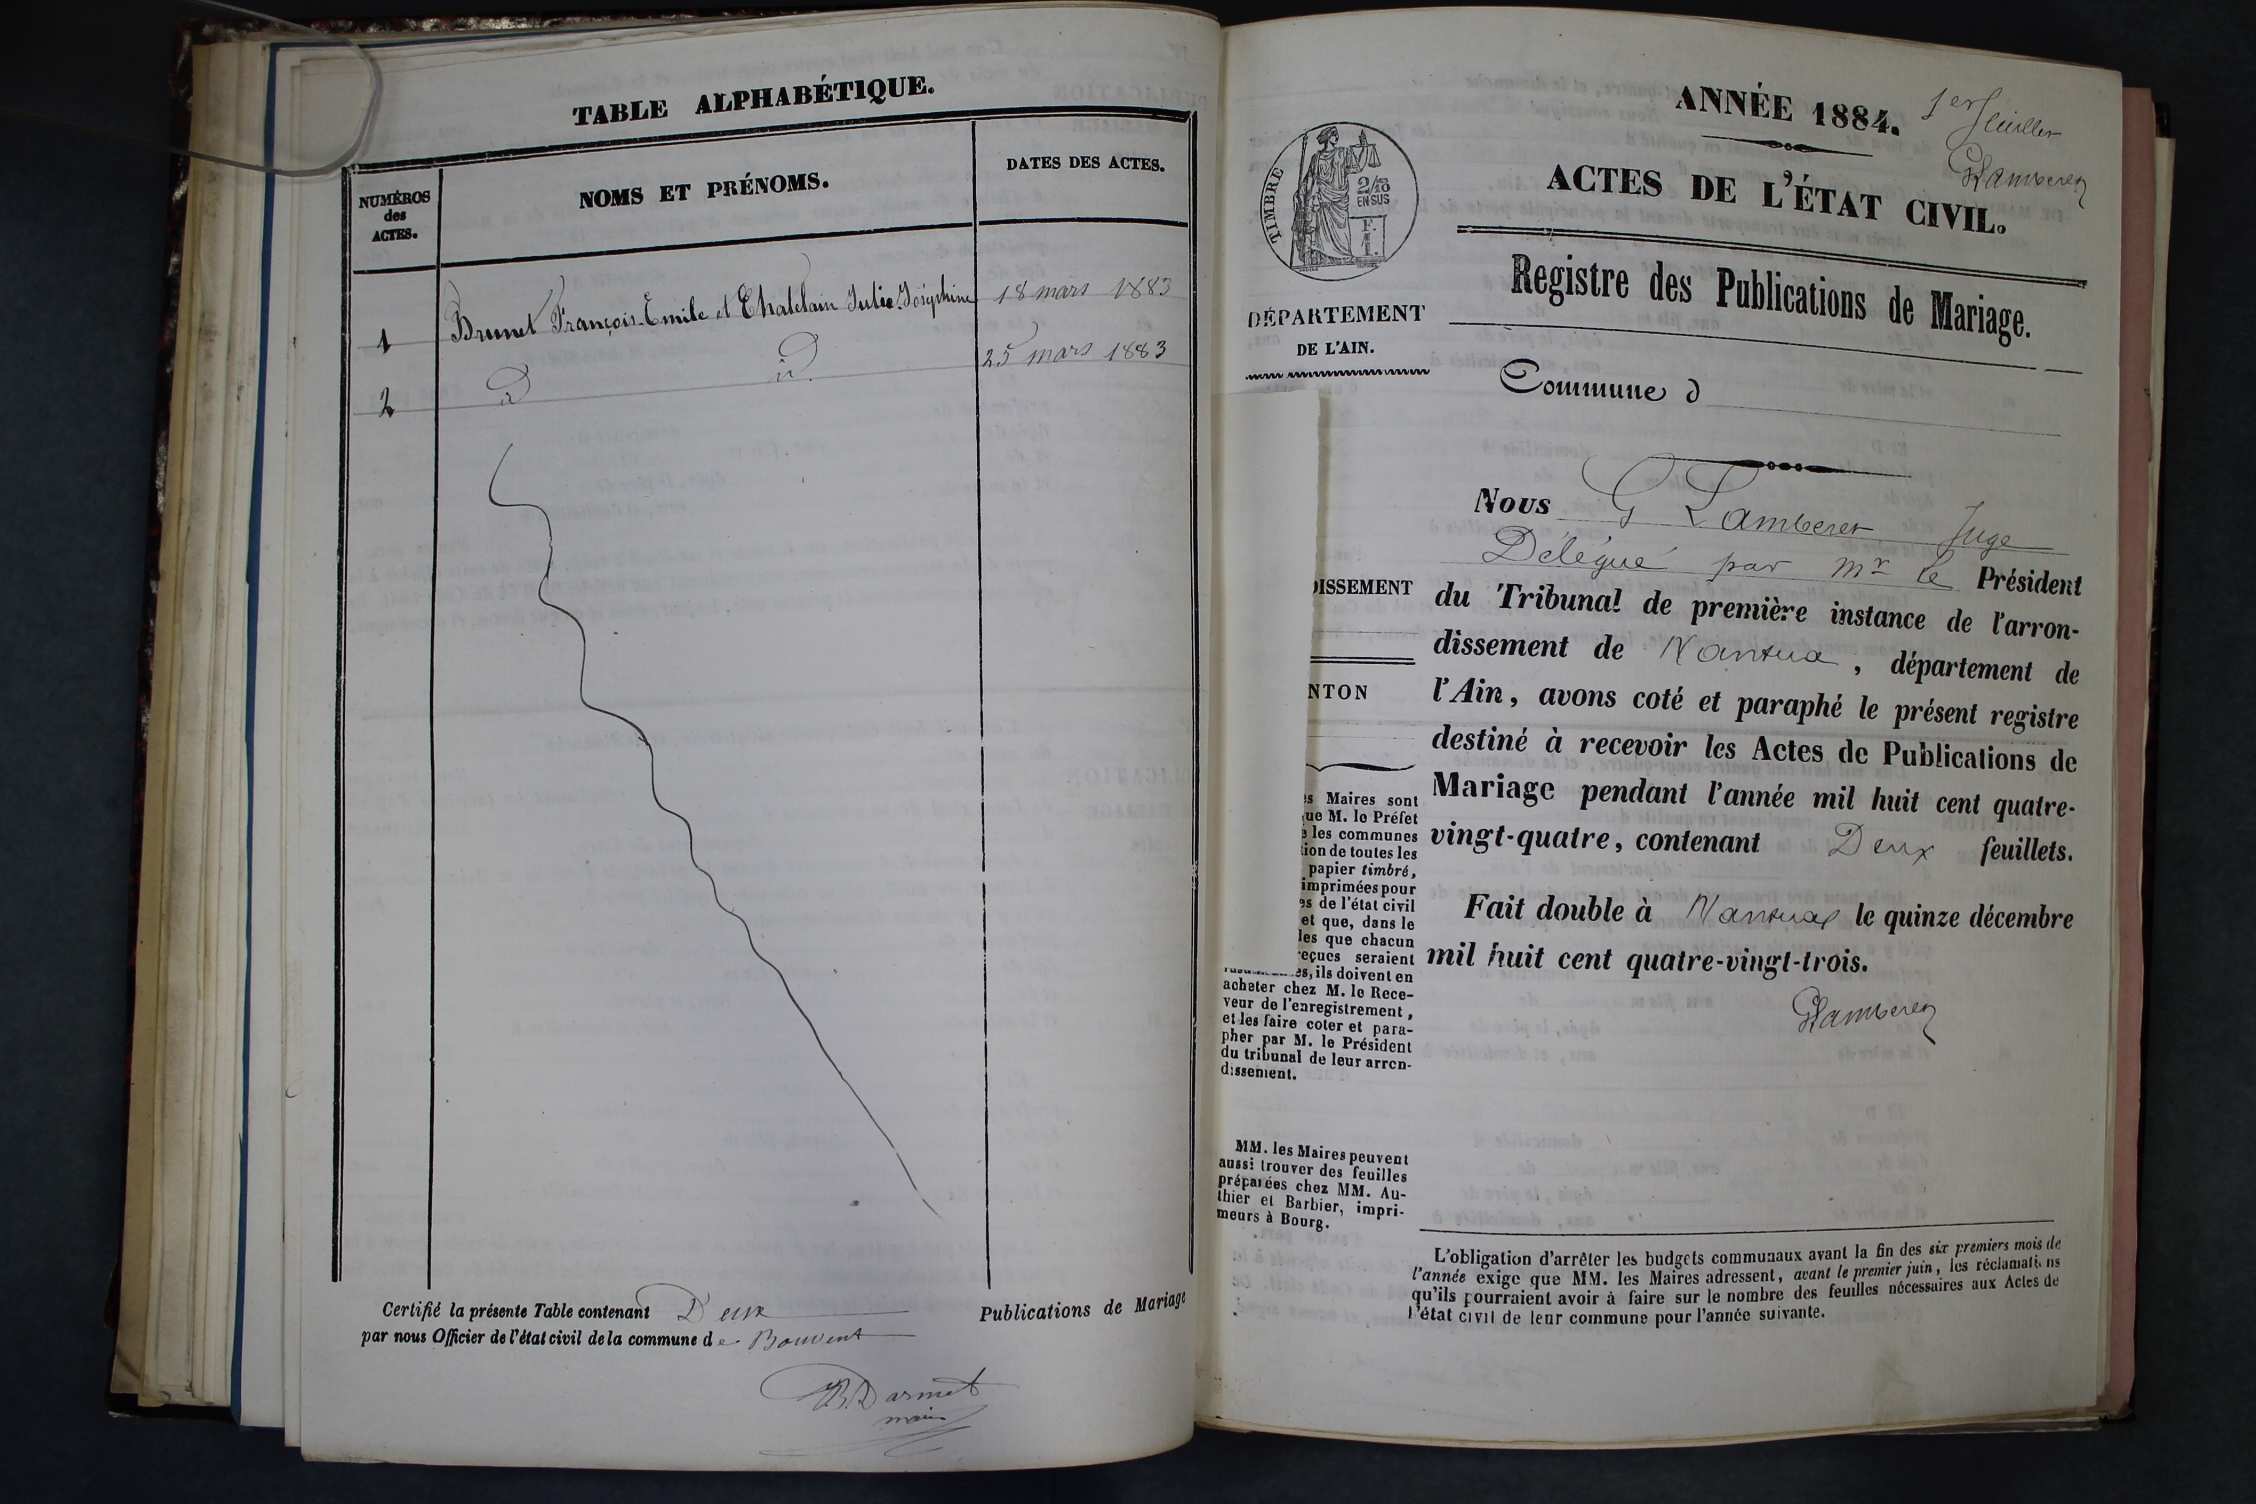 TABLE ALPHABÉTIQUE.
NUMÉROS
des
ACTES.
NOMS ET PRÉNOMS.
DATES DES ACTES.
1 Brunet François-Emile et Chatelain Julie Joséphine 18 mars 1883
2 d° d° 25 mars 1883
Certifié la présente Table contenant Deux Publications de Mariage
par nous Officier de l'état civil de la commune de Bouvent
Darmet
maire
ANNÉE 1884.
1er feuillet
GLamberet
ACTES DE L'ÉTAT CIVIL.
TIMBRE
2/10
EN SUS
F.
1.
DÉPARTEMENT
DE L'AIN.
Registre des Publications de Mariage.
Commune d
Nous G Lamberet Juge
Délégué par Mr le Président
du Tribunal de première instance de l'arron-
dissement de Nantua, département de
l'Ain, avons coté et paraphé le présent registre
destiné à recevoir les Actes de Publications de
Mariage pendant l'année mil huit cent quatre-
vingt-quatre, contenant Deux feuillets.
Fait double à Nantua le quinze décembre
mil huit cent quatre-vingt-trois.
GLamberet
DISSEMENT
NTON
s Maires sont
ue M. le Préfet
e les communes
ion de toutes les
papier timbré,
imprimées pour
es de l'état civil
et que, dans le
les que chacun
eçues seraient
es, ils doivent en
acheter chez M. le Rece-
veur de l'enregistrement,
et les faire coter et para-
pher par M. le Président
du tribunal de leur arron-
dissement.
MM. les Maires peuvent
aussi trouver des feuilles
préparées chez MM. Au-
thier et Barbier, impri-
meurs à Bourg.
L'obligation d'arrêter les budgets communaux avant la fin des six premiers mois de
l'année exige que MM. les Maires adressent, avant le premier juin, les réclamations
qu'ils pourraient avoir à faire sur le nombre des feuilles nécessaires aux Actes de
l'état civil de leur commune pour l'année suivante.